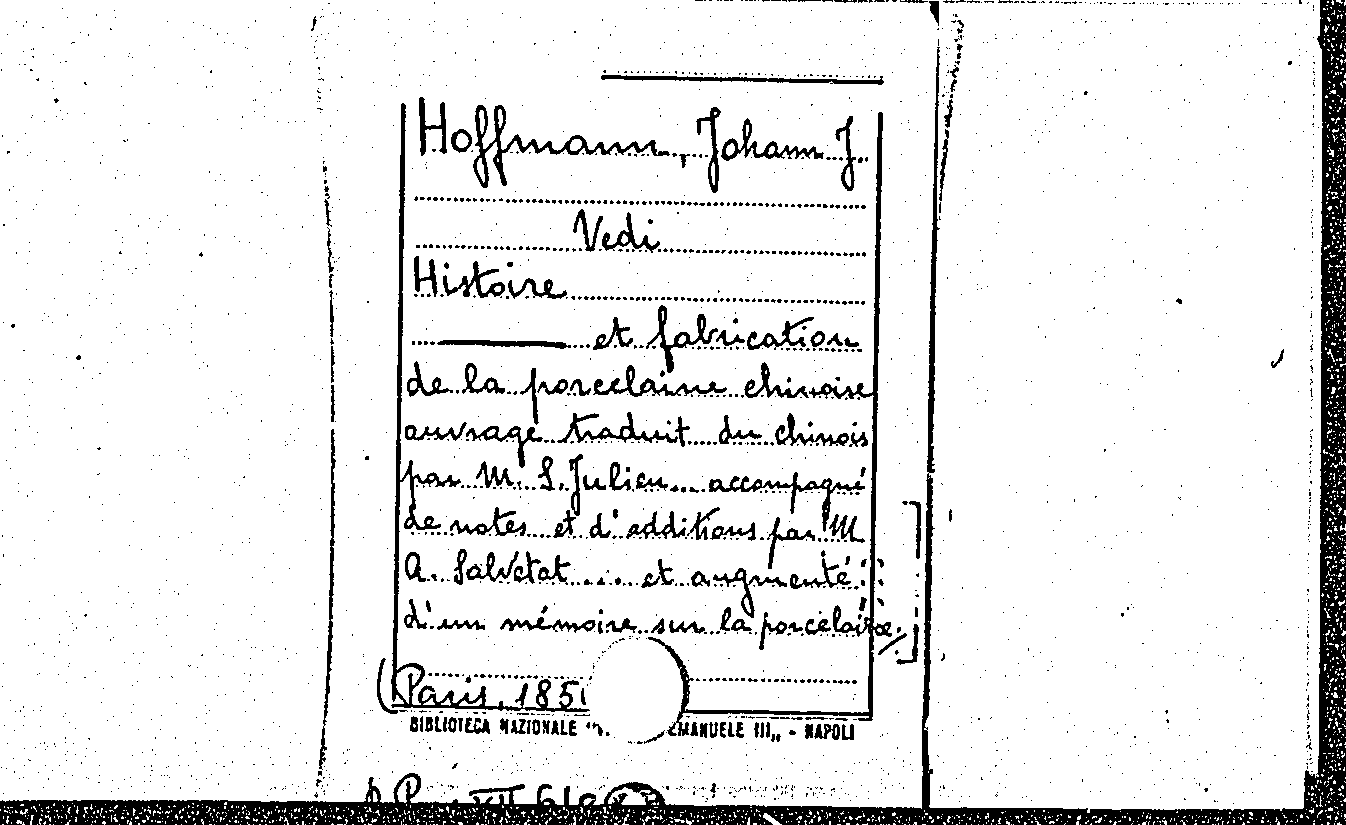 Hoffmann, Johann J.
Vedi
Histoire
——— et fabrication
de la porcelaine chinoise
ouvrage traduit du chinois
par M. S. Julien... accompagné
de notes et d'additions par M
A. Salvétat .... et augmenté
d'un mémoire sur la porcelaine.
(Paris, 185
BIBLIOTECA NAZIONALE EMANUELE III,, - NAPOLI